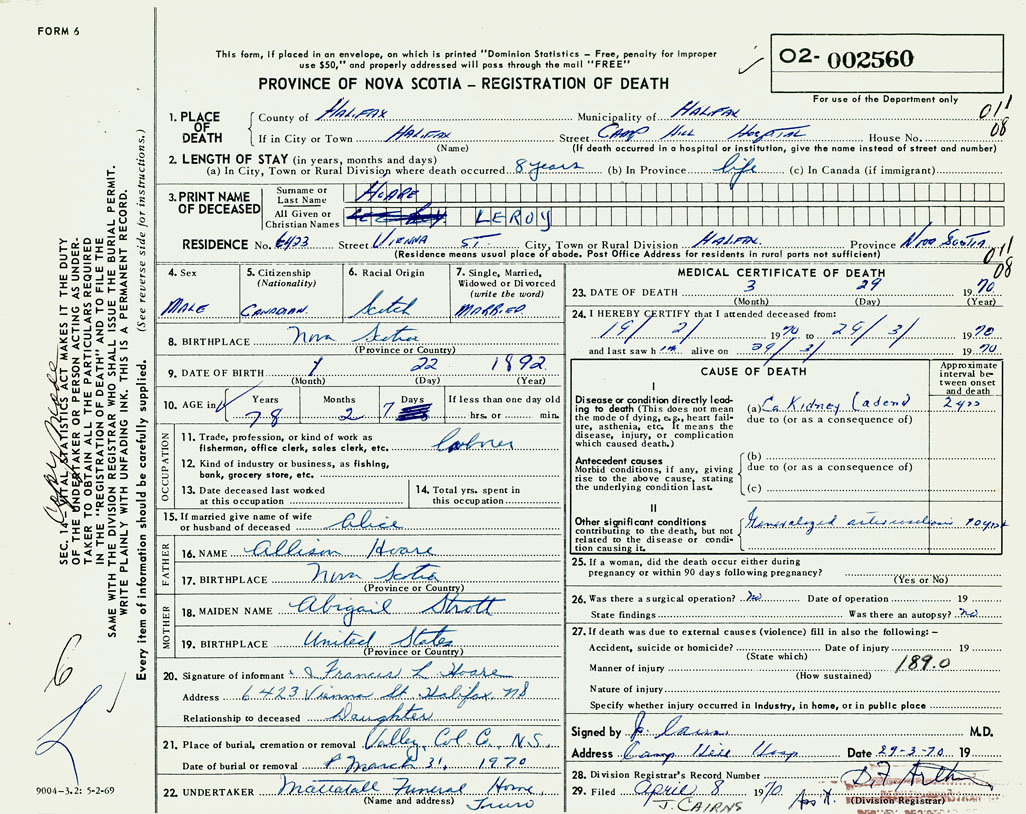 FORM 6
This form, if placed in an envelope, on which is printed "Dominion Statistics – Free, penalty for improper
use $50," and properly addressed will pass through the mail "FREE"
PROVINCE OF NOVA SCOTIA – REGISTRATION OF DEATH
02- 002560
For use of the Department only
011
08
1. PLACE OF DEATH
County of HALIFAX Municipality of HALIFAX
If in City or Town HALIFAX Street CAMP HILL HOSPITAL House No.
(Name) (If death occurred in a hospital or institution, give the name instead of street and number)
2. LENGTH OF STAY (in years, months and days)
(a) In City, Town or Rural Division where death occurred 8 years (b) In Province life (c) In Canada (if immigrant)
3. PRINT NAME OF DECEASED
Surname or Last Name HOARE
All Given or Christian Names LEROY
RESIDENCE No. 6423 Street VIENNA ST. City, Town or Rural Division HALIFAX. Province NOVA SCOTIA
(Residence means usual place of abode. Post Office Address for residents in rural parts not sufficient)
011
08
4. Sex
MALE
5. Citizenship
(Nationality)
CANADIAN.
6. Racial Origin
Scotch
7. Single, Married, Widowed or Divorced
(write the word)
MARRIED.
8. BIRTHPLACE Nova Scotia
(Province or Country)
9. DATE OF BIRTH 1 22 1892
(Month) (Day) (Year)
10. AGE in Years Months Days If less than one day old
78 2 7 hrs. or min.
OCCUPATION
11. Trade, profession, or kind of work as
fisherman, office clerk, sales clerk, etc.
12. Kind of industry or business, as fishing,
bank, grocery store, etc.
13. Date deceased last worked
at this occupation
14. Total yrs. spent in
this occupation
15. If married give name of wife
or husband of deceased Alice
FATHER
16. NAME Allison Hoare
17. BIRTHPLACE Nova Scotia
(Province or Country)
MOTHER
18. MAIDEN NAME Abigail Strott
19. BIRTHPLACE United States
(Province or Country)
20. Signature of informant Frances L Hoare
Address 6423 Vienna St. Halifax, NS
Relationship to deceased Daughter
21. Place of burial, cremation or removal Valley, Col. C., N.S.
Date of burial or removal March 31, 1970
22. UNDERTAKER Mattatall Funeral Home
(Name and address) Truro
MEDICAL CERTIFICATE OF DEATH
23. DATE OF DEATH 3 29 1970
(Month) (Day) (Year)
24. I HEREBY CERTIFY that I attended deceased from:
19/2/ 1970 to 29/3/ 1970
and last saw him alive on 29/3/ 1970
CAUSE OF DEATH
Approximate interval between onset and death
I
Disease or condition directly leading
to death (This does not mean
the mode of dying, e.g., heart failure,
asthenia, etc. It means the
disease, injury, or complication
which caused death.)
(a) Ca Kidney (adeno)
due to (or as a consequence of)
Antecedent causes
Morbid conditions, if any, giving
rise to the above cause, stating
the underlying condition last.
(b)
due to (or as a consequence of)
(c)
II
Other significant conditions
contributing to the death, but not
related to the disease or condition
causing it.
Generalized
25. If a woman, did the death occur either during
pregnancy or within 90 days following pregnancy?
(Yes or No)
26. Was there a surgical operation? no Date of operation 19
State findings Was there an autopsy? no
27. If death was due to external causes (violence) fill in also the following: –
Accident, suicide or homicide? Date of injury 19
(State which)
Manner of injury 189.0
(How sustained)
Nature of injury
Specify whether injury occurred in industry, in home, or in public place
Signed by J. Cairns M.D.
Address Camp Hill Hosp Date 29-3-70 19
28. Division Registrar's Record Number
29. Filed April 8 1970
J. CAIRNS
(Division Registrar)
SEC. 14 – VITAL STATISTICS ACT MAKES IT THE DUTY
OF THE UNDERTAKER OR PERSON ACTING AS UNDERTAKER
TO OBTAIN ALL THE PARTICULARS REQUIRED
IN THE "REGISTRATION OF DEATH" AND TO FILE THE
SAME WITH THE DIVISION REGISTRAR WHO SHALL ISSUE THE BURIAL PERMIT.
WRITE PLAINLY WITH UNFADING INK. THIS IS A PERMANENT RECORD.
Every item of information should be carefully supplied. (See reverse side for instructions.)
9004-3.2: 5-2-69